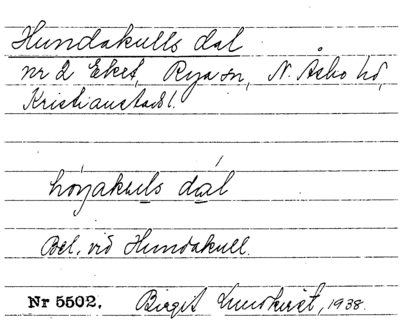 Hundakulls dal
nr 2 Eket, Rya sn, N. Åsbo hd,
Kristianstads l.
hoŋakuls dal
Bel. vid Hundakull.
Nr 5502. Birgit Lundkvist, 1938.